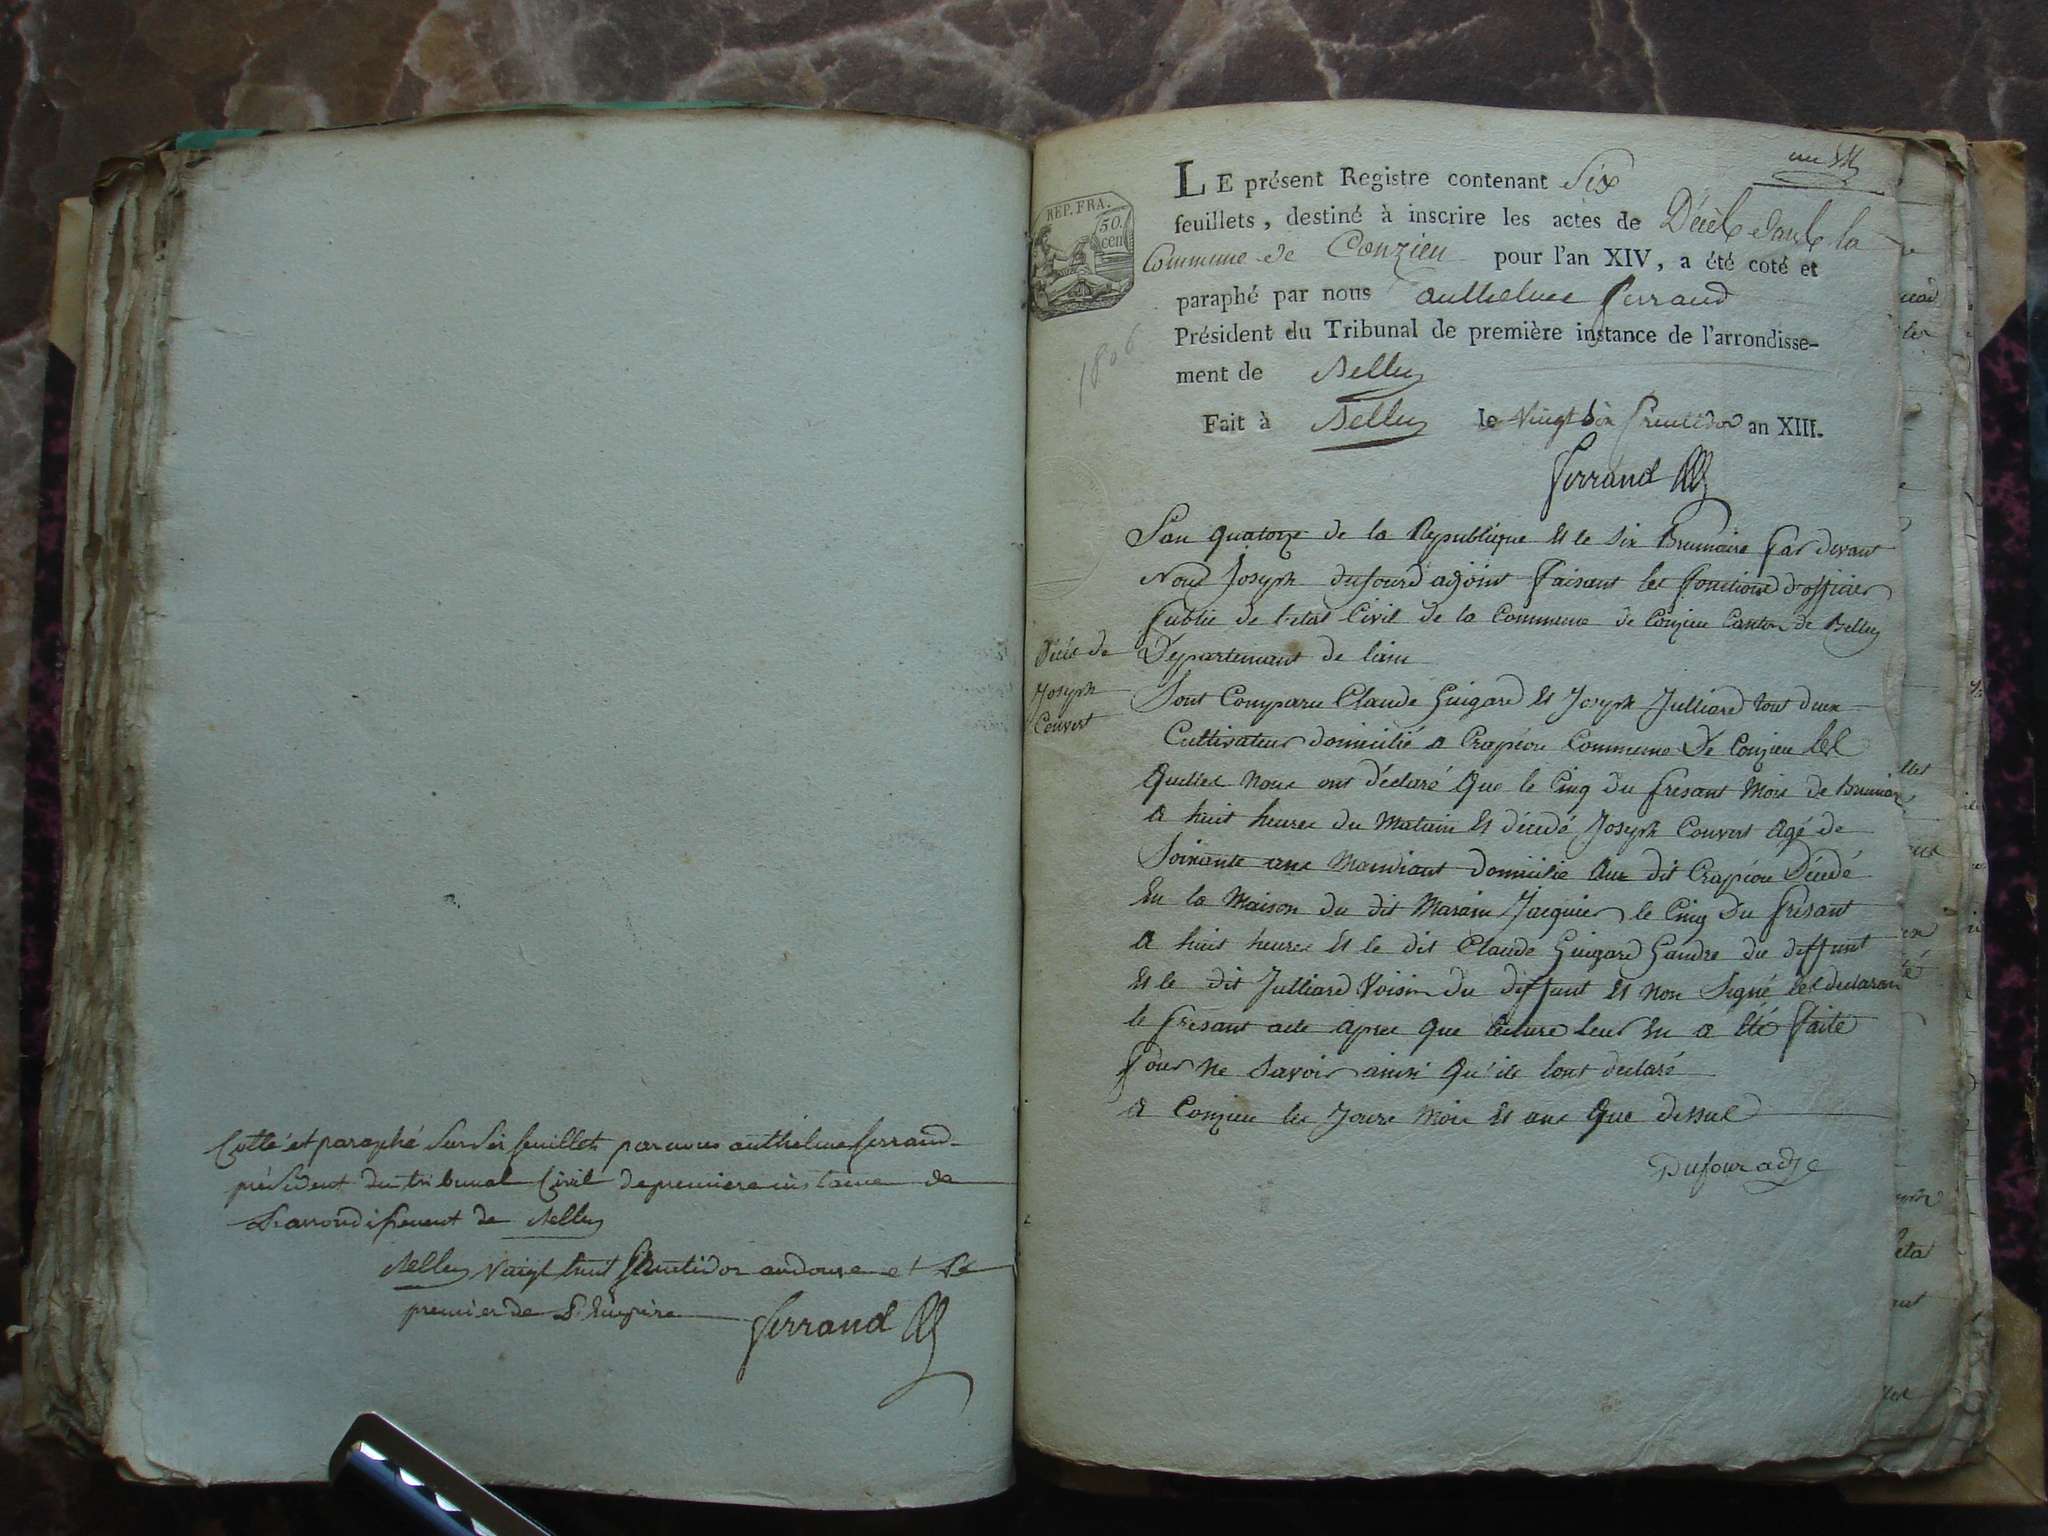 Cotté et paraphé sur six feuillets par nous anthelme ferrand
président du tribunal Civil de premiere instance de
L'arrondissement de Belley
Belley vingt huit fructidor an douze et le
premier de L'Empire
ferrand
un
LE présent Registre contenant Six
feuillets, destiné à inscrire les actes de Décès dans la
Commune de Conzieu pour l'an XIV, a été coté et
paraphé par nous anthelme ferrand
Président du Tribunal de première instance de l'arrondisse-
ment de Belley
Fait à Belley le Vingt six fructidor an XIII.
ferrand
REP. FRA.
50.
cen
1806
L'an quatorze de la Republique et le six Brumaire par devant
Nous Joseph dufourd adjoint faisant les fonctions d'officier
public de l'etat Civil de la Commune de Conzieu Canton de Belley
Departemant de l'ain
Décès de
Joseph
Couvert
Sont Comparu Claude Guigard et Joseph Julliard tout deux
Cultivateur domicilié a Crapéou Commune De Conzieu les
quelles nous ont déclaré que le Cinq du presant Mois de Brumaire
a huit heures du Matain et décedé Joseph Couvert agé de
Soixante ans Mandiant domicilié au dit Crapéou Décedé
En la Maison du dit Jacquier le Cinq Du presant
a huit heures et le dit Claude Guigard Gandre du deffunt
et le dit Julliard Voisin du deffunt et non Signé les declarant
le presant acte apres que lecture leur en a été faite
pour ne Savoir ainsi qu'ils l'ont declaré
a Conzieu les Jours Mois et ans que dessus
Dufour adj